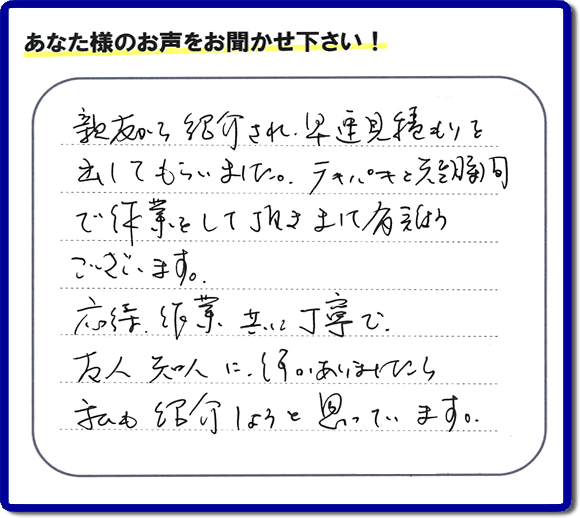 あなた様のお声をお聞かせ下さい！
親友から紹介され、早速見積もりを
出してもらいました。テキパキと短時間
で作業をして頂きまして有難う
ございます。
応待、作業共に丁寧で、
友人知人に、何かありましたら
私も紹介しようと思っています。